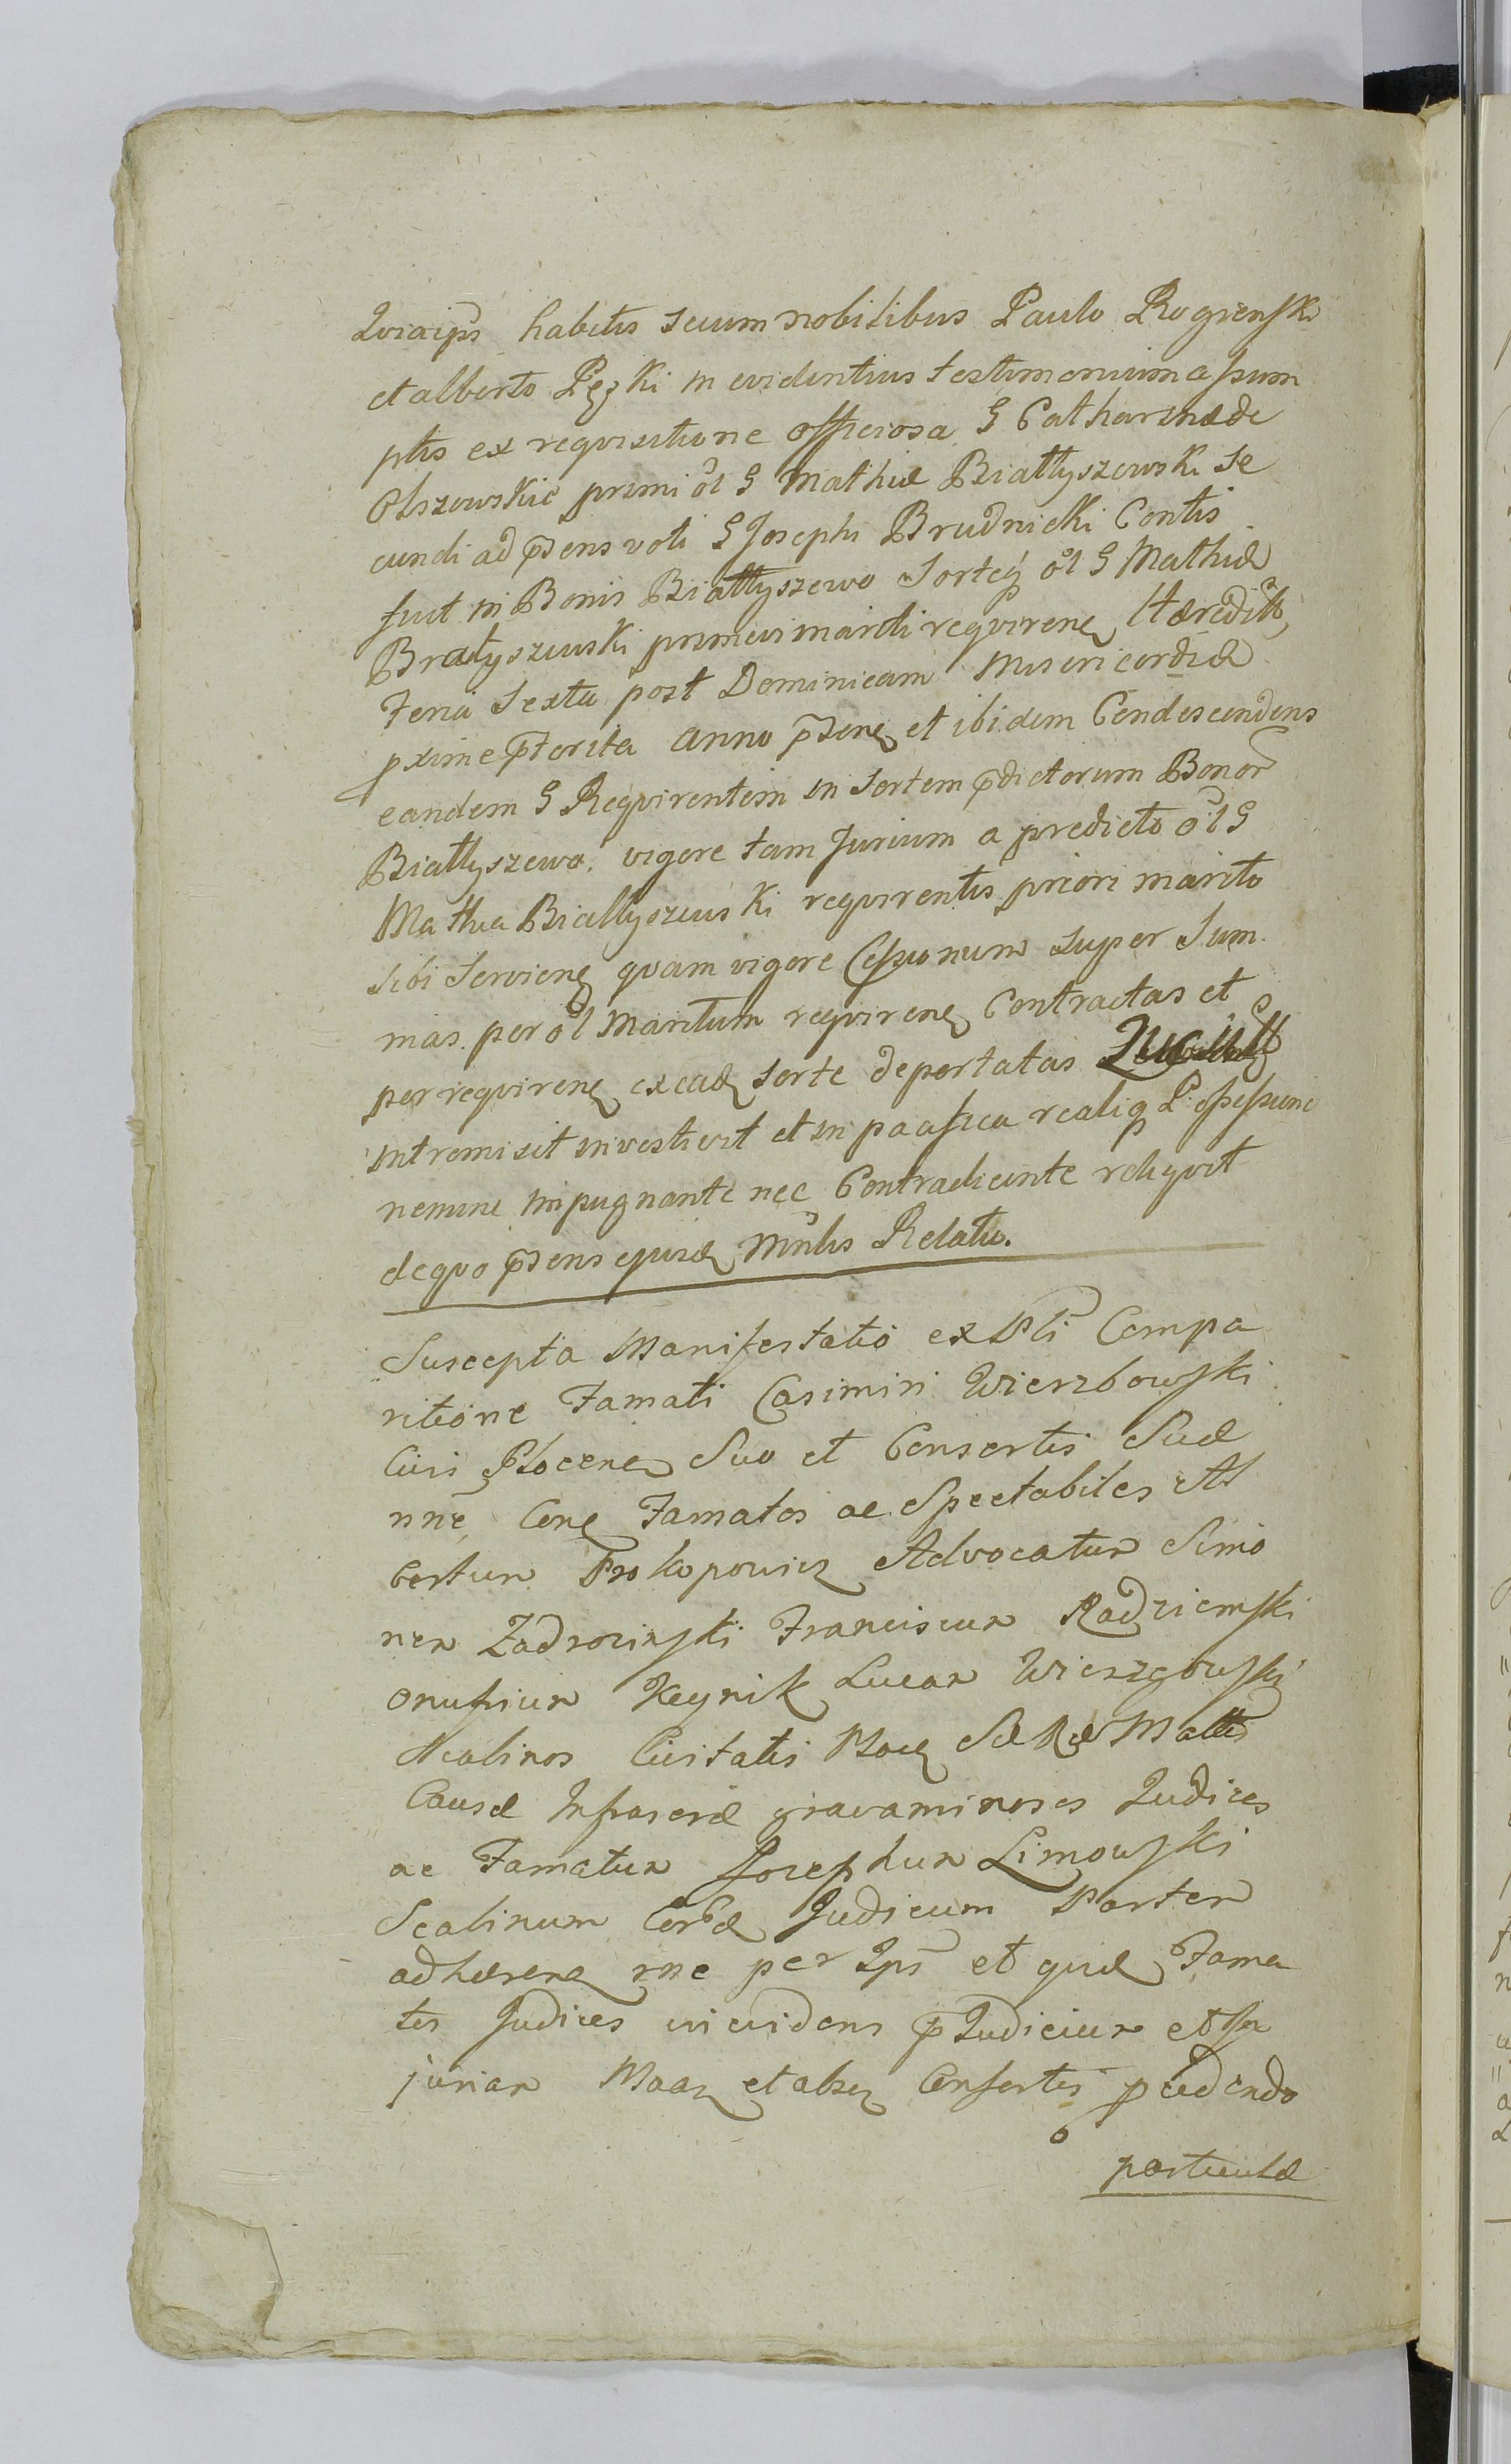 Quia ips habitis secum nobilibus Paulo Rogienski
et alberto Pęzki in evidentius testimonium assum
ptis ex requisitione officiosa G Catharinæ de
Olszewskie primi ol G Mathiæ Białłyszewski se
cundi ad p̄sens voti G Josephi Brudnicki Contis
fuit in Bonis Białłyszewo Sorteq ol G Mathiæ
Białyszewski primevi mariti requirenē Hæredit̄
Feria Sexta post Dominicam Misericordiæ
pxime p̄terita anno p̄senē et ibidem Condescendens
eandem G Requirentem in Sortem p̄dictorum Bonor
Białłyszewo. vigore tam Jurium a predicto ol G
Mathia Białłyszewski requirentis priori marito
sibi Servienē quam vigore Cessionum super Sum
mas. per ol Maritum requirenē Contractas et
per requirenē ex ead Sorte deportatas
intromisit investivit et in pacifica realiq Possessione
nemine impugnante nec Contradicente reliquit
de quo p̄sens ejusd Mnlis Relatio.
Suscepta Manifestatio ex Pli Compa
ritione Famati Casimiri Wierzbowski
Civis Plocenē Suo et Consortis Suæ
nne, Conē Famatos ac Spectabiles Al
bertum Prokopowicz Advocatum Simo
nem Zadrozinski Franciscum Radziemski
Onufrium Keynik Lucam Wierzbowski
Scabinos Civitatis Ploce S R Mattis
Causæ Infrascræ gravaminosos Judices
ac Famatum Josephum Limowski
Scabinum Judicum Partem
adhærenē me per Ips et quiæ Fama
tos Judices in evidens p̄Judicium et In
juriam Maaz et absq Consortis pcedendo
particulæ